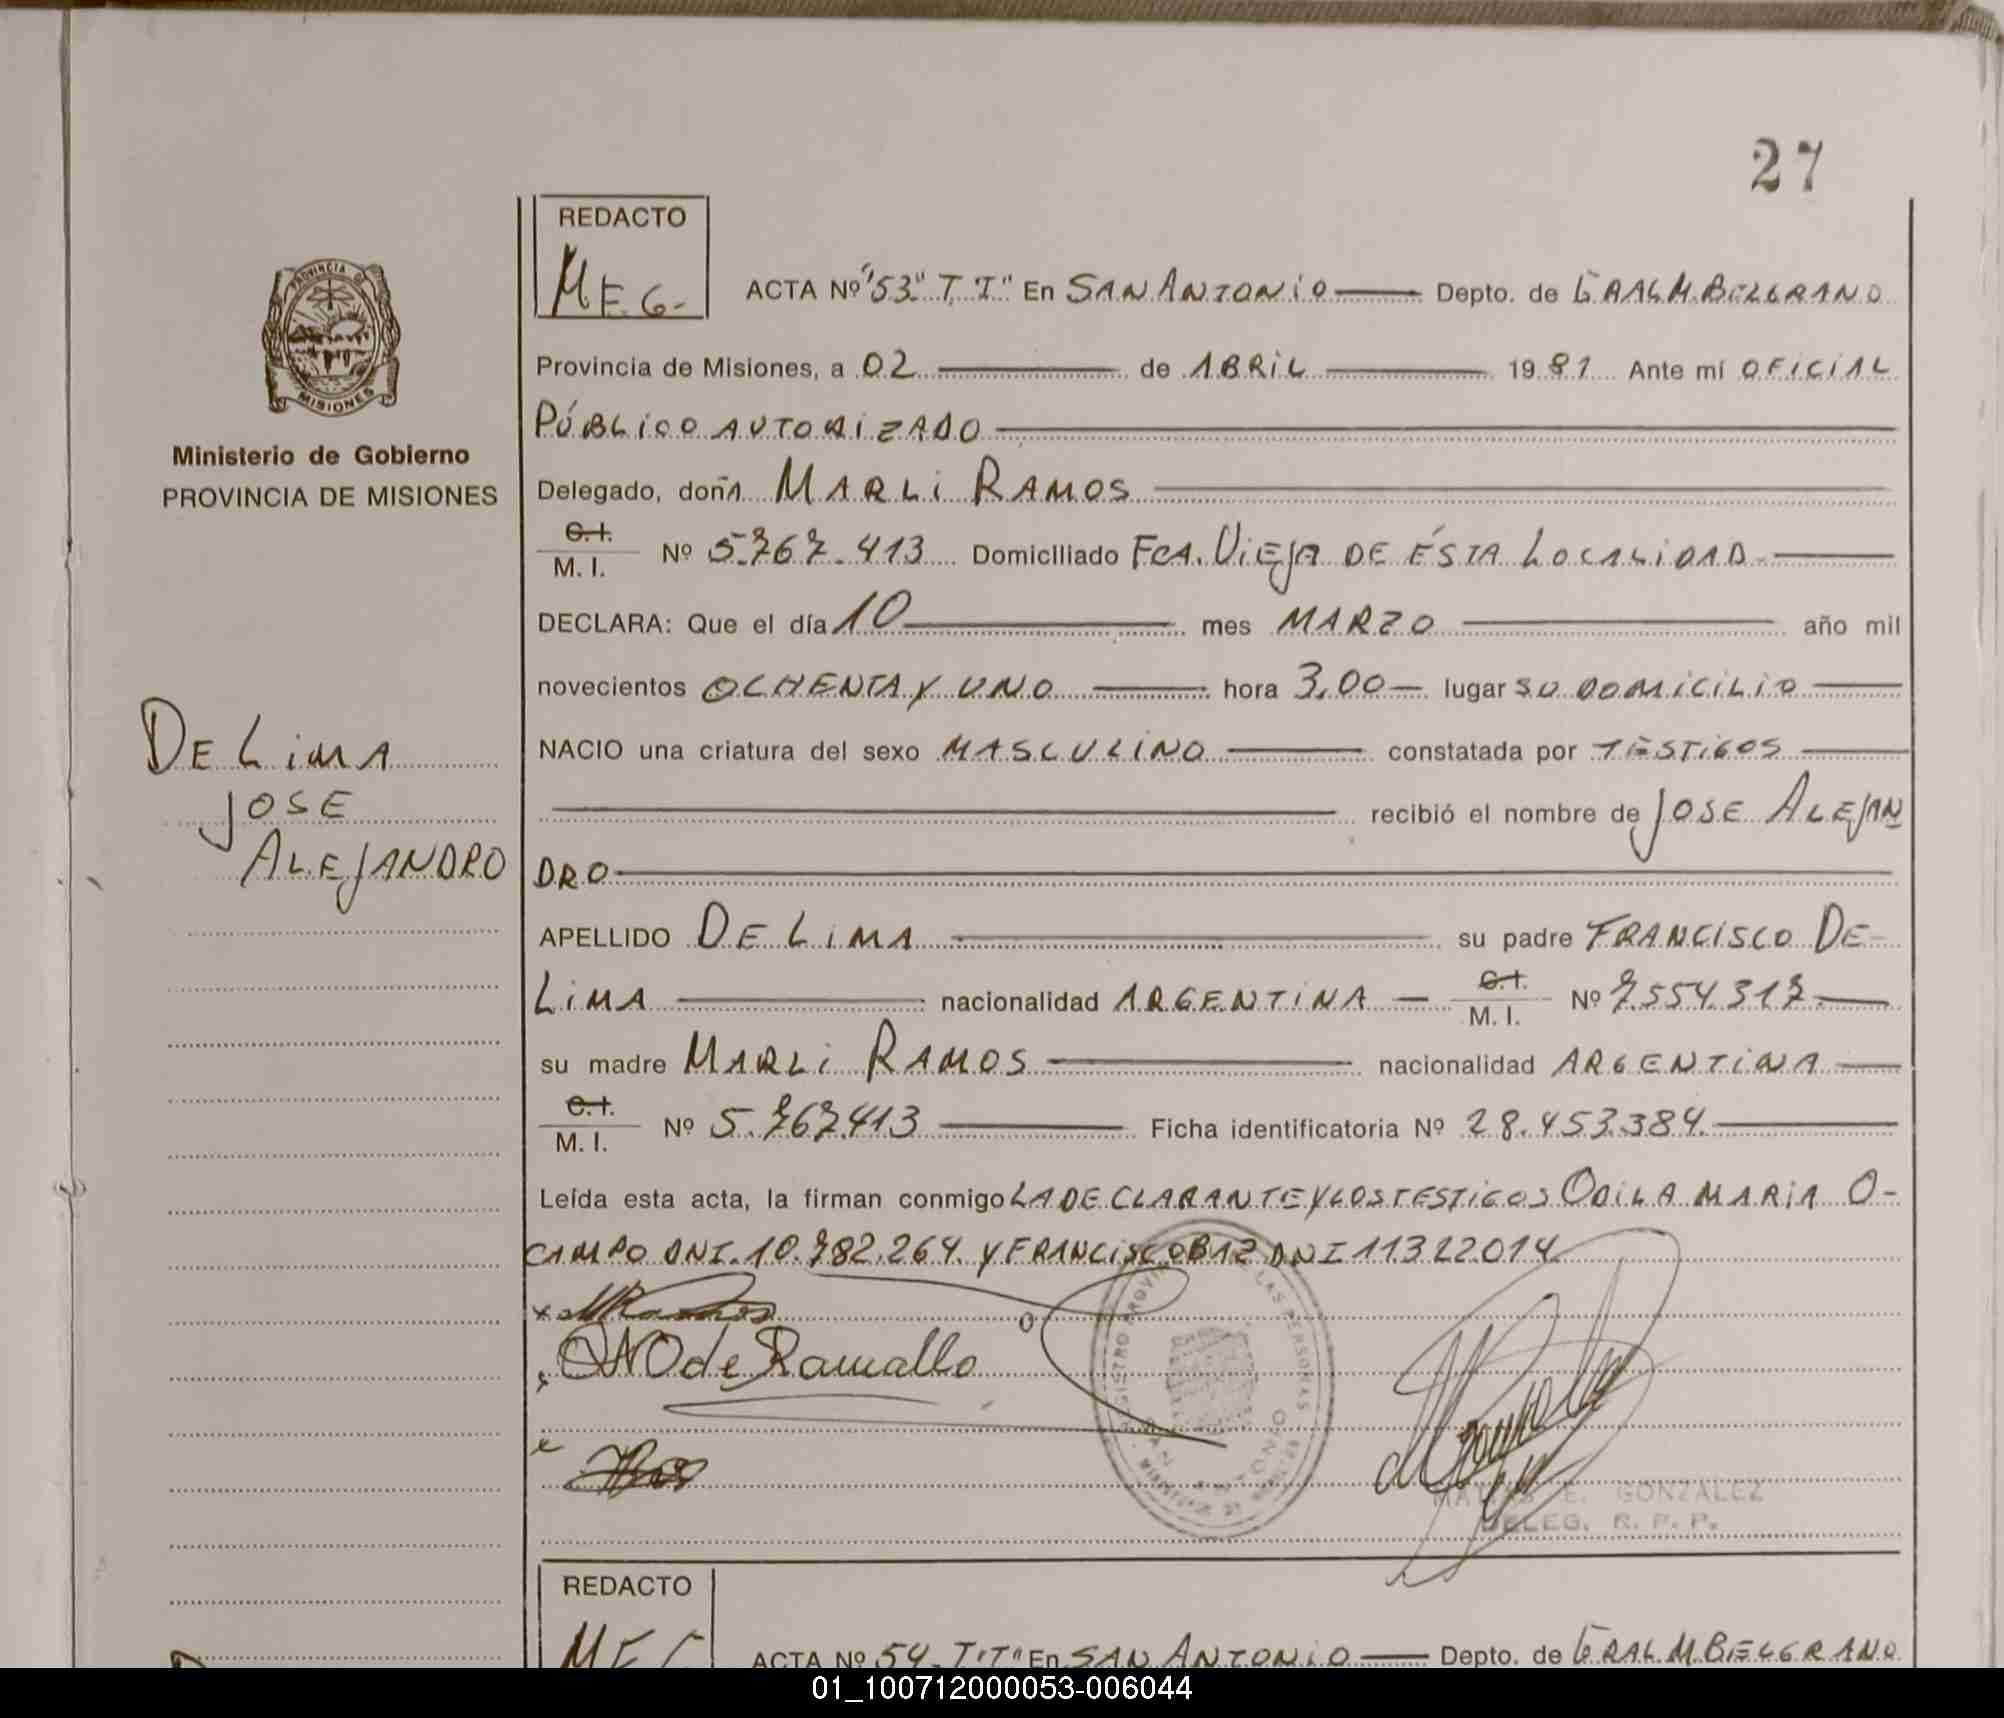 27
REDACTO
M.E.G-
ACTA Nº "53" T. I" En SAN ANTONIO Depto. de GRAL M. BELGRANO
Provincia de Misiones, a 02 de ABRIL 1981 Ante mí OFICIAL
PÚBLICO AUTORIZADO
Delegado, doña MARLI RAMOS
C.I.
M. I. Nº 5.767.413 Domiciliado FCA. VIEJA DE ÉSTA LOCALIDAD
DECLARA: Que el día 10 mes MARZO año mil
novecientos OCHENTA Y UNO hora 3,00 lugar SU DOMICILIO
NACIO una criatura del sexo MASCULINO constatada por TESTIGOS
recibió el nombre de JOSE ALEJAN
DRO
APELLIDO DE LIMA su padre FRANCISCO DE
LIMA nacionalidad ARGENTINA C.I. M. I. Nº 7.554.317
su madre MARLI RAMOS nacionalidad ARGENTINA
C.I.
M. I. Nº 5.767.413 Ficha identificatoria Nº 28.453.384.
Leída esta acta, la firman conmigo LA DECLARANTE Y LOS TESTIGOS ODILA MARIA O-
CAMPO DNI. 10.782.264. Y FRANCISCO BAZ DNI 11322014
MRamos
OMO de Ramallo
REGISTRO PROVINCIAL DE LAS PERSONAS
SAN ANTONIO
E. GONZALEZ
DELEG. R. P. P.
PROVINCIA DE
MISIONES
Ministerio de Gobierno
PROVINCIA DE MISIONES
DE LIMA
JOSE
ALEJANDRO
REDACTO
ACTA Nº 54- T"I" En SAN ANTONIO Depto. de GRAL. M. BELGRANO
01_100712000053-006044